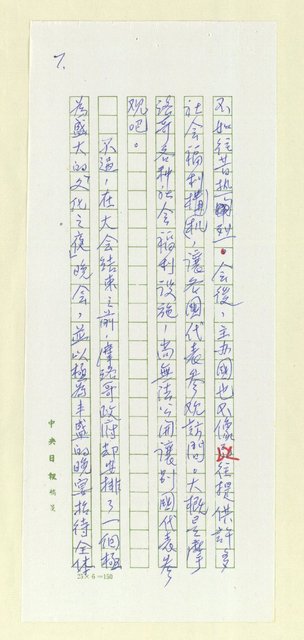 7.
不如往昔热烈。会後，主办國也不像以往提供許多
社会福利機机，讓各國代表參观訪問。大概是摩
洛哥各种社会福利設施，尚無法公開讓別國代表參
观吧。
不過，在大会结束之前，摩洛哥政府却安排了一個極
為盛大的「文化之夜」晚会，並以極為丰盛的晚宴招待全体
中央日報稿箋
25×6=150